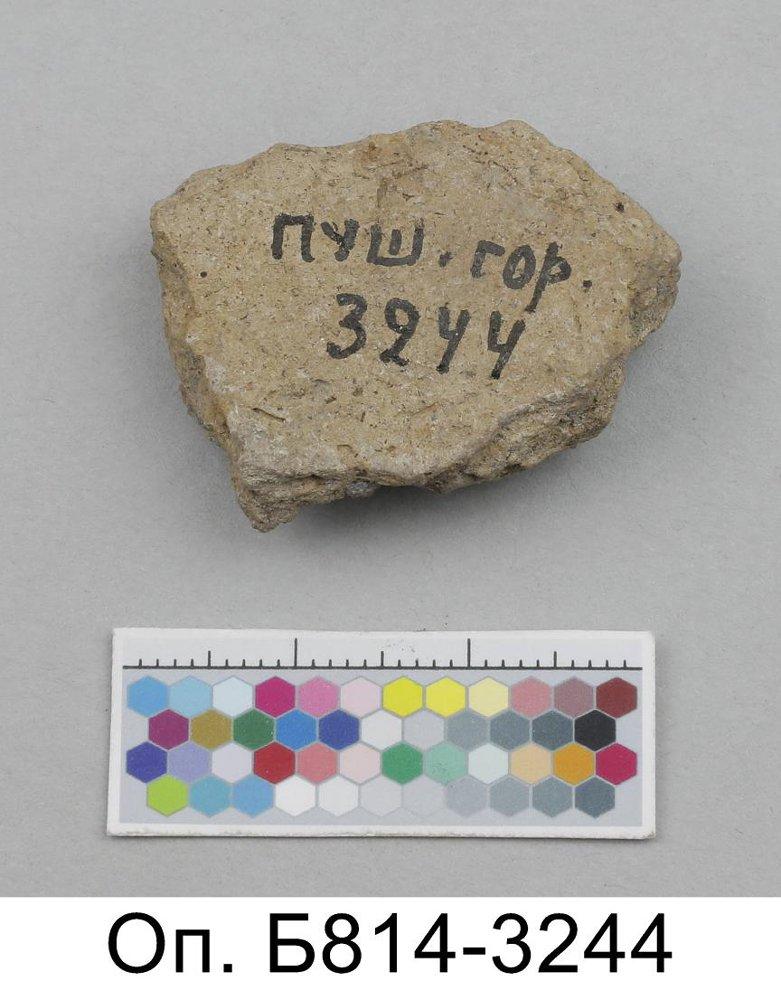 пуш. гор.
3244
Оп. Б814-3244